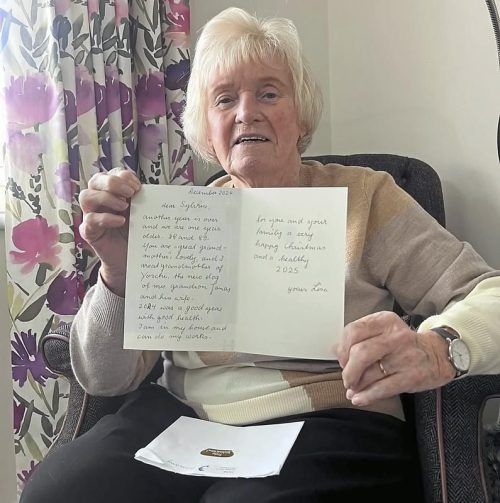 December 2024
dear Sylvia,
another year is over
and we are one year
older. 86 and 82.
You are "great grand-
mother" lovely, and I
great grandmother of
the new dog
of my grandson Jonas
and his wife.
2024 was a good year
with good health.
I am in my house and
can do my works.
for you and your
family a very
happy Christmas
and a healthy
2025
your